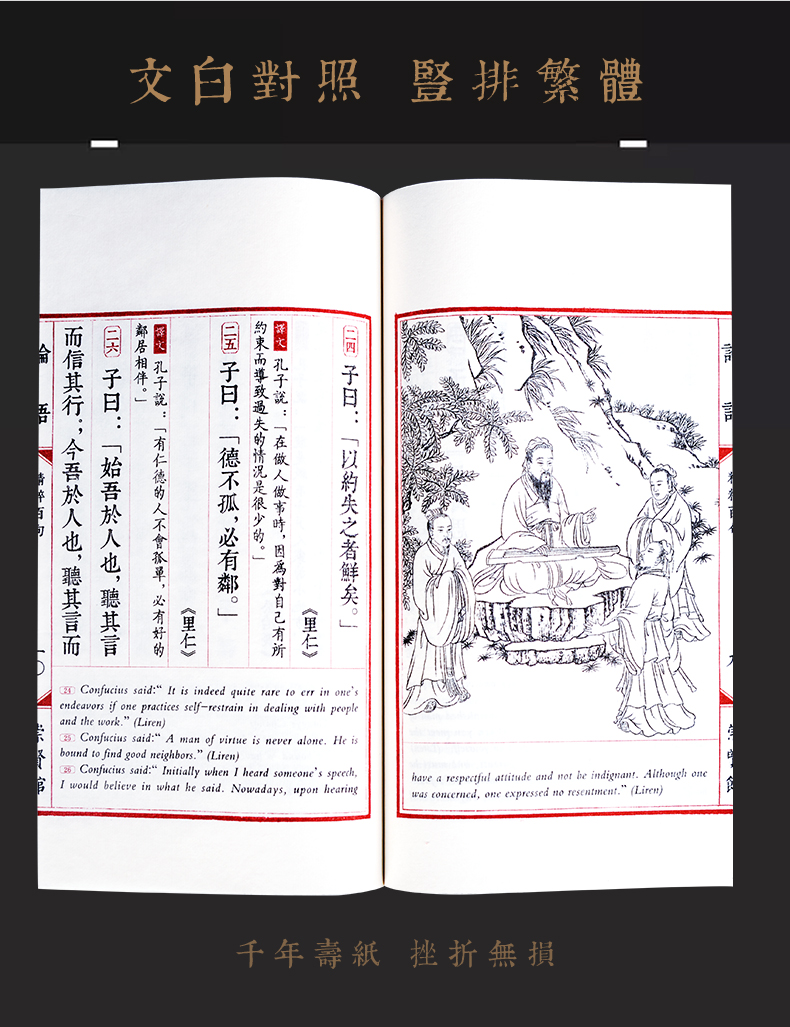 文白對照 豎排繁體
have a respectful attitude and not be indignant. Although one
was concerned, one expressed no resentment." (Liren)
二四 子曰：「以約失之者鮮矣。」
《里仁》
譯文 孔子說：「在做人做事時，因爲對自己有所
約束而導致過失的情況是很少的。」
二五 子曰：「德不孤，必有鄰。」
《里仁》
譯文 孔子說：「有仁德的人不會孤單，必有好的
鄰居相伴。」
二六 子曰：「始吾於人也，聽其言
而信其行；今吾於人也，聽其言而
論語 精粹百句 一〇 崇賢館
24 Confucius said:" It is indeed quite rare to err in one's
endeavors if one practices self-restrain in dealing with people
and the work." (Liren)
25 Confucius said:" A man of virtue is never alone. He is
bound to find good neighbors." (Liren)
26 Confucius said:" Initially when I heard someone's speech,
I would believe in what he said. Nowadays, upon hearing
千年壽紙 挫折無損